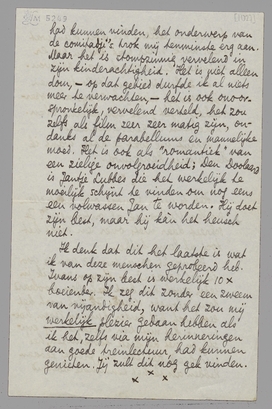 had kunnen vinden, het onderwerp van
de comitadji's trok mij tenminste erg aan.
Maar het is stomp zinnig vervelend in
zijn kinderachtigheid. Het is niet alleen
dom, — op dat gebied durfde ik al niets
meer te verwachten, — het is ook onoor-
spronkelijk, vervelend verteld, het zou
zelfs als film zeer zeer matig zijn, on-
dankt al de parabellums en mannelijke
moed. Het is ook als "romantiek" van
een zielige onvolgroeidheid; Den Doolaard
is Jantje Lubbes die het werkelijk te
moeilijk schijnt te vinden om nog eens
een volwassen Jan te worden. Hij doet
zijn best, maar hij kàn het heusch
niet.
Ik denk dat dit het laatste is wat
ik van deze menschen geprofeerd heb.
Ivans op zijn best is werkelijk 10 x
boeiender. Ik zeg dit zonder een zweem
van vijandigheid, want het zou mij
werkelijk plezier gedaan hebben als
ik het, zelfs via mijn herinneringen
aan goede treinlectuur, had kunnen
genieten. Jij zult dit nog gek vinden.
x x x